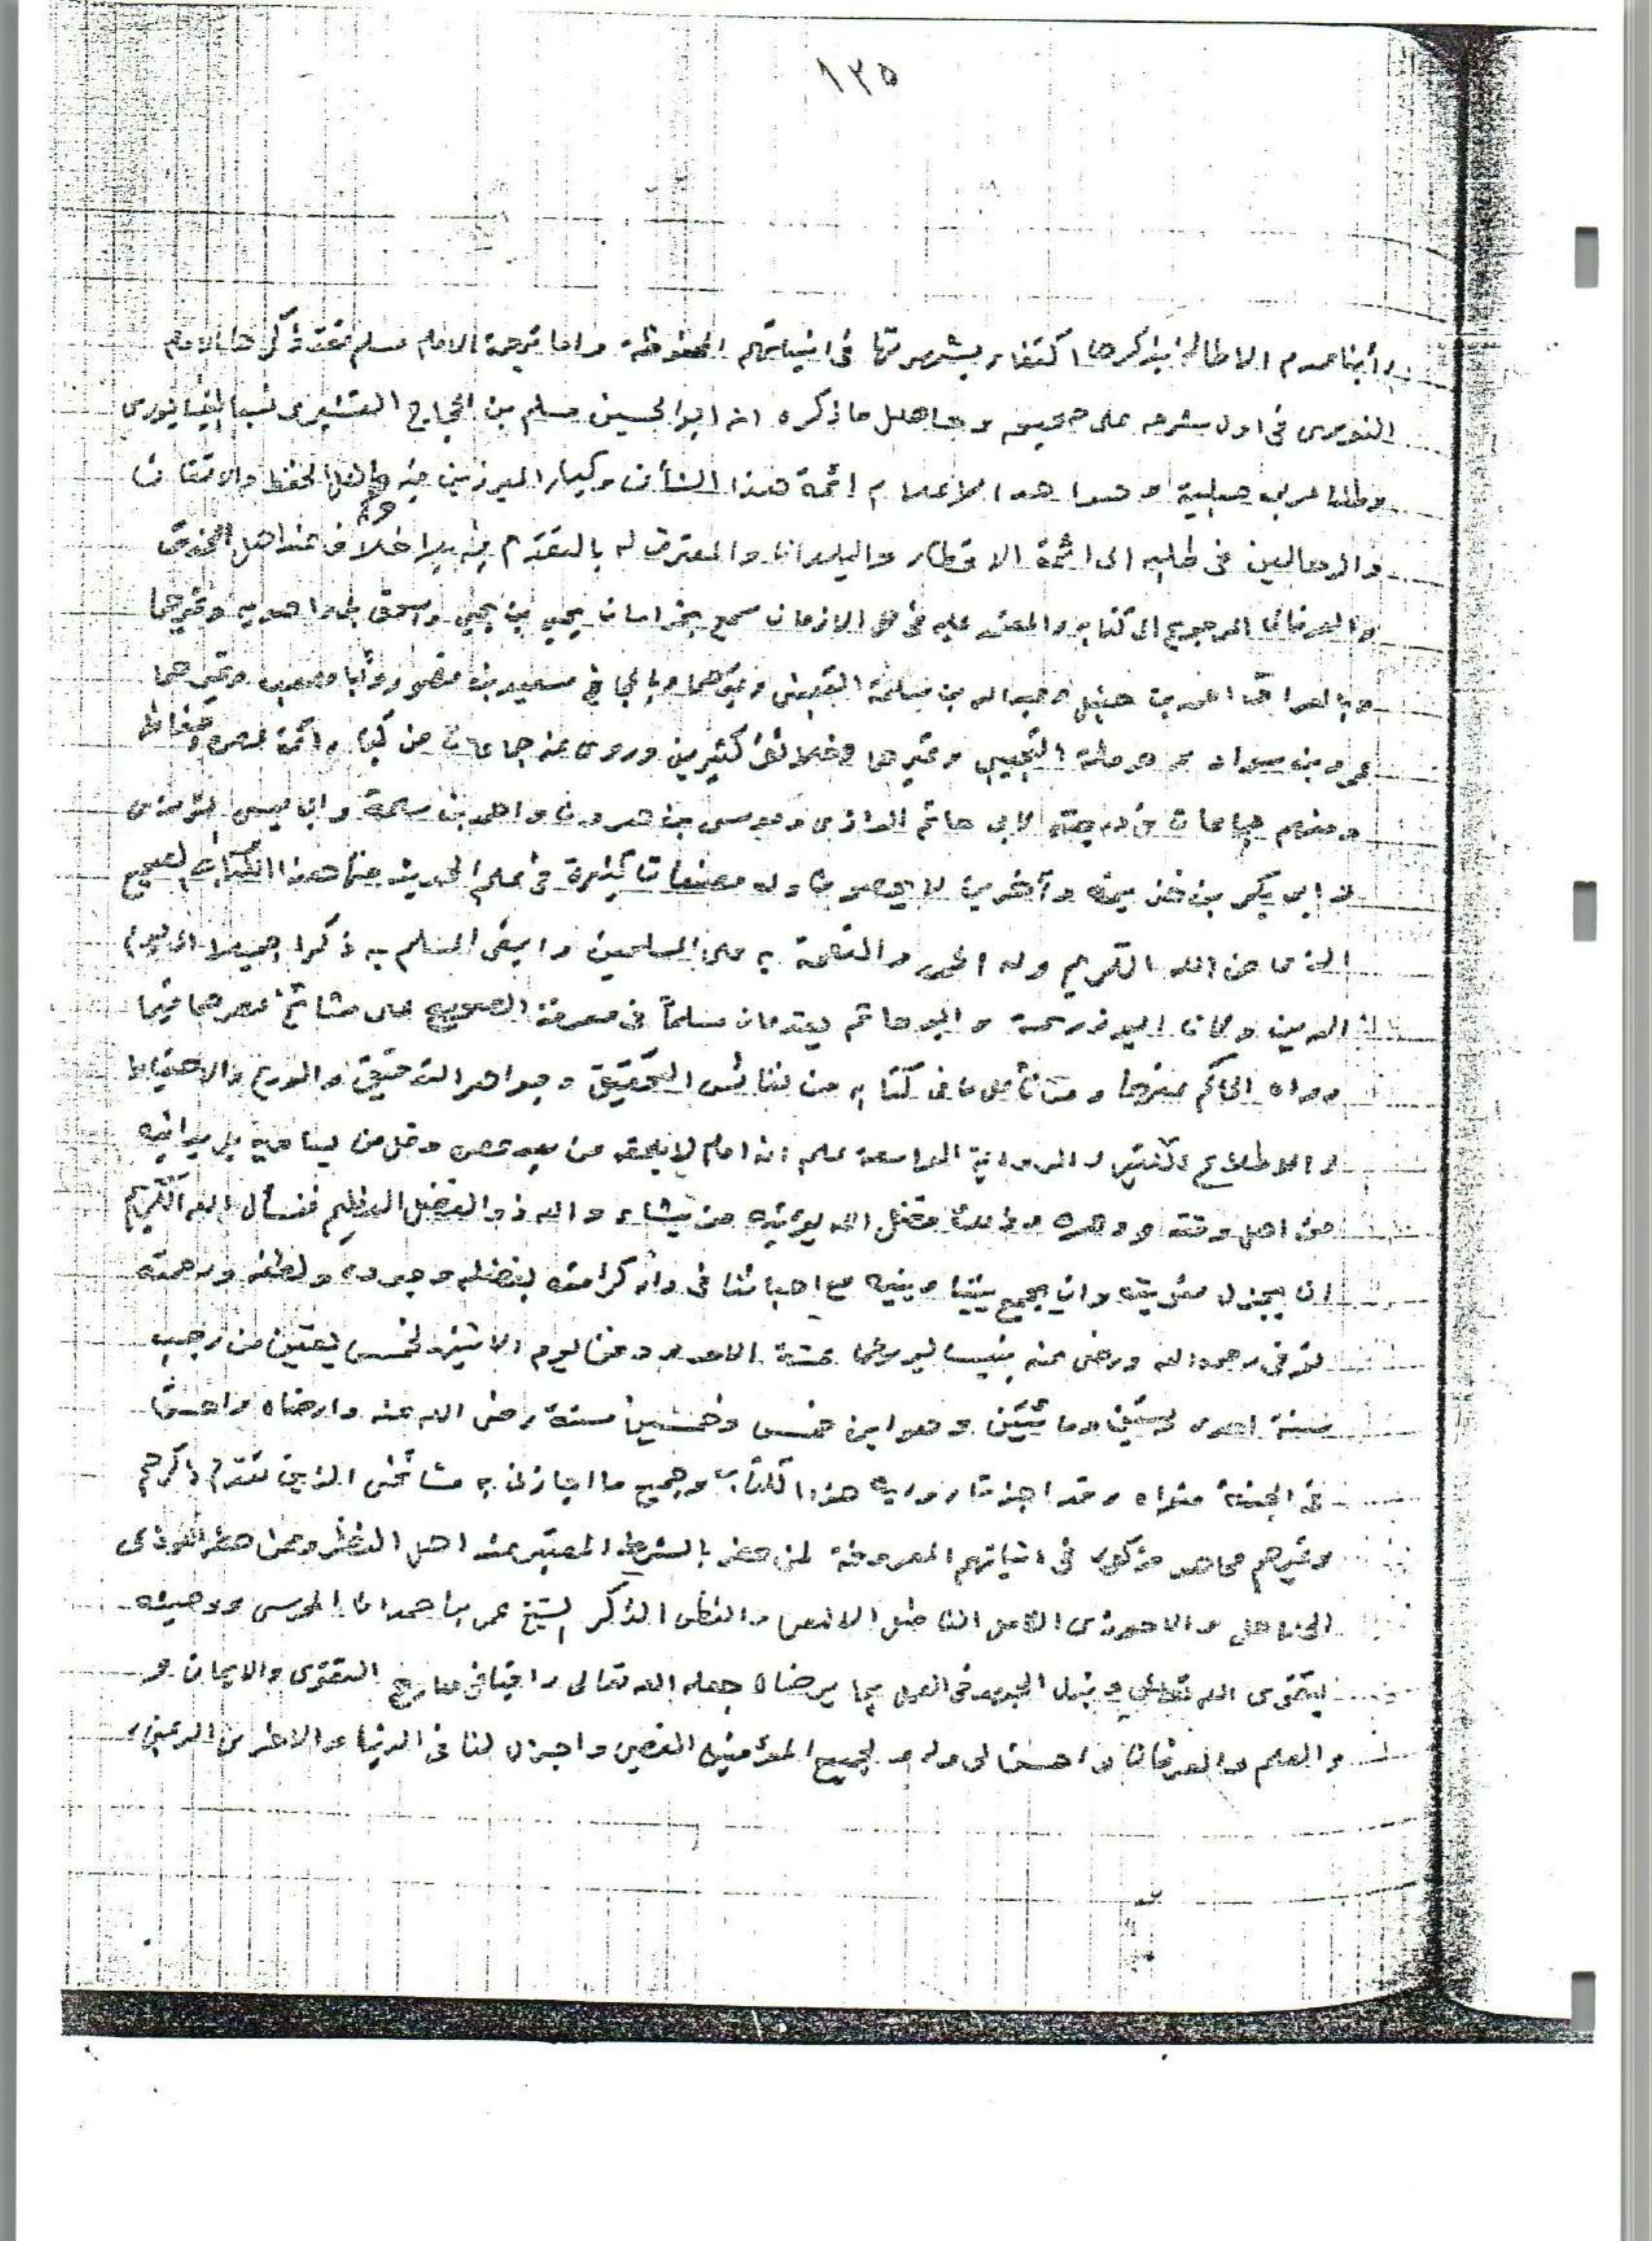 ١٢٥
رأينا عدم الاطالة بذكرها اكتفاء بشهرتها في اثباتهم المحفوظة واما ترجمة الامام مسلم فقد ذكرها الامام
النووي في اول شرحه على صحيحه وحاصل ما ذكره انه ابو الحسين مسلم بن الحجاج القشيري نسبا النيسابوري
وطنا عربي صلبية وهو احد الاعلام ائمة هذا الشأن وكبار المبرزين فيه واهل الحفظ والاتقان
والرحالين في طلبه الى ائمة الاقطار والبلدان والمعترف له بالتقدم فيه بلا خلاف عند اهل الحذق
والعرفان المرجوع الى كتابه والمعتمد عليه في كل الازمان سمع بخراسان يحيى بن يحيى واسحق بن راهويه وغيرهما
وبالعراق احمد بن حنبل وعبد الله بن مسلمة القعنبي وغيرهما وبالحجاز سعيد بن منصور وأبا مصعب وغيرهما
عمرو بن سواد وحرملة التجيبي وغيرهما وخلائق كثيرين وروى عنه جماعات من كبار ائمة عصره وحفاظه
ومنهم جماعات في درجته كأبي حاتم الرازي وموسى بن هرون واحمد بن سلمة وابي عيسى الترمذي
وابي بكر بن خزيمة وآخرين لا يحصون وله مصنفات كثيرة في علم الحديث منها هذا الكتاب الصحيح
الذي من الله الكريم وله الحمد والنعمة به على المسلمين وابقى لمسلم به ذكرا جميلا الى يوم
الدين وكان ابو زرعة وابو حاتم يقدمان مسلماً في معرفة الصحيح على مشائخ عصرهما فيما
رواه الحاكم عنهما ومن تأمل ما في كتابه من نفائس التحقيق وجواهر التدقيق والورع والاحتياط
والاطلاع الكثير والرواية الواسعة علم انه امام لا يلحقه من بعد عصره وقل من يساويه بل يدانيه
من اهل وقته ودهره وذلك فضل الله يؤتيه من يشاء والله ذو الفضل العظيم فنسأل الله الكريم
ان يجزل مثوبته وان يجمع بيننا وبينه مع احبائنا في دار كرامته بفضله وجوده ولطفه ورحمته
توفي رحمه الله ورضي عنه بنيسابور عشية الاحد ودفن يوم الاثنين لخمس بقين من رجب
سنة احدى وستين ومائتين وهو ابن خمس وخمسين سنة رضي الله عنه وارضاه واحسن
في الجنة مثواه وقد اجزت رواية هذا الكتاب وجميع ما اجازني به مشائخي الذين تقدم ذكرهم
وغيرهم مما هو مذكور في اثباتهم المعروفة لمن حضر بالشرط المعتبر عند اهل النظر وممن حضر
الفاضل الالمعي والفطن الذكر الشيخ عمر بن حمدان المحرسي ووصيته
بتقوى الله تعالى وبذل الجهد في العمل بما يرضاه جعله الله تعالى راقيا في معارج التقوى والايمان و
والعلم والعرفان واحسن لي وله ولجميع المؤمنين واجزل لنا في الدنيا